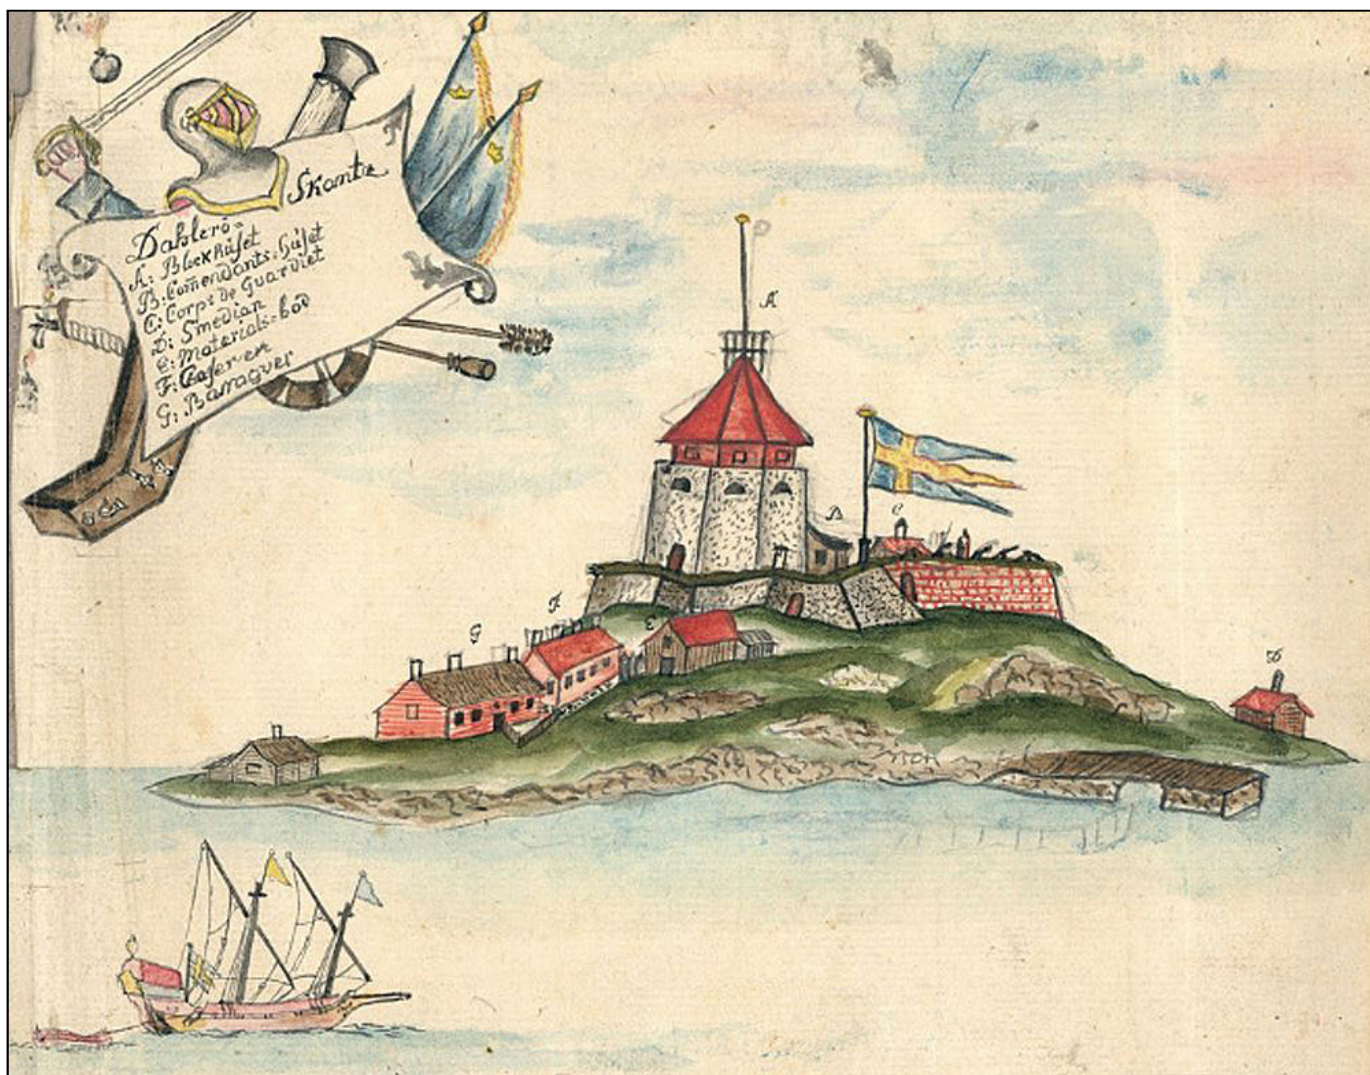 Dahlerö=
Skantz
A: Blockhuset
B: Com̃endants-huset
C: Corps de Guardiet
D: Smedian
E: Materials=bod
F: Casernen
G: Barraquer
A
B
C
F
E
G
D